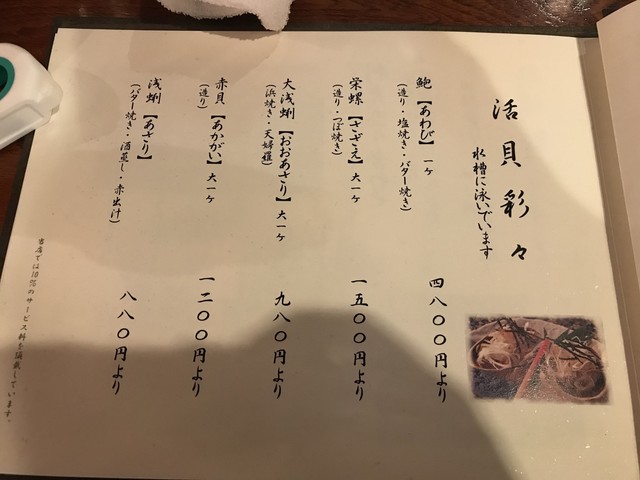 活貝彩々
水槽に泳いでいます
鮑【あわび】一ヶ
(造り・塩焼き・バター焼き)
四八〇〇円より
栄螺【さざえ】大一ヶ
(造り・つぼ焼き)
一五〇〇円より
大浅蜊【おおあさり】大一ヶ
(浜焼き・天婦羅)
九八〇円より
赤貝【あかがい】大一ヶ
(造り)
一二〇〇円より
浅蜊【あさり】
(バター焼き・酒蒸し・赤出汁)
八八〇円より
当店では10%のサービス料を頂戴しています。